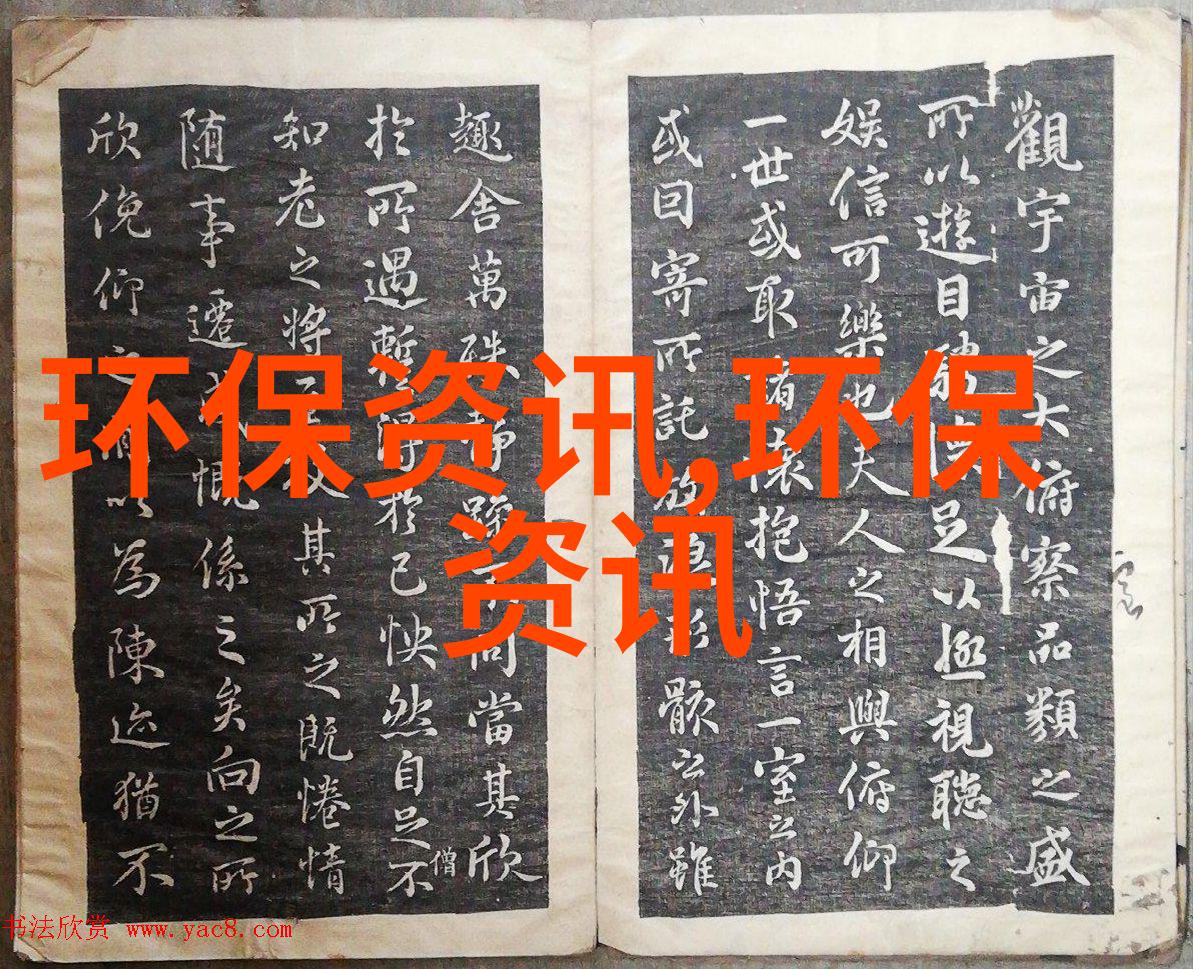 觀宇宙之大俯察品類之盛
所以遊目騁懷足以極視聽之
娱信可樂也夫人之相與俯仰
一世或取諸懷抱悟言一室之内
或因寄所託放浪形骸之外雖
趣舍萬殊靜躁不同當其欣
於所遇暫得於己怏然自足不
僧
知老之將及其所之既惓情
随事遷感慨係之矣向之所
欣俛仰之間以為陳迹猶不
环保资讯,环保
资讯
书法欣赏 www.yac8.com